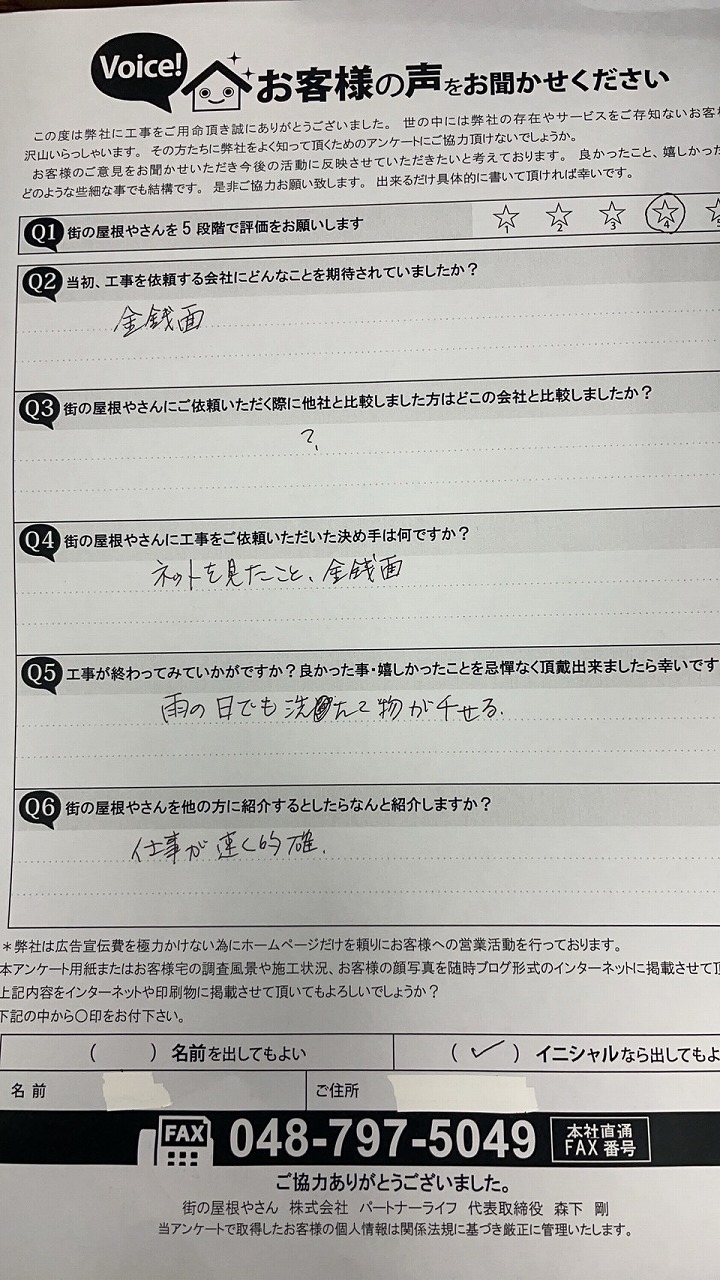 Voice!
お客様の声をお聞かせください
この度は弊社に工事をご用命頂き誠にありがとうございました。 世の中には弊社の存在やサービスをご存知ないお客様
沢山いらっしゃいます。 その方たちに弊社をよく知って頂くためのアンケートにご協力頂けないでしょうか。
お客様のご意見をお聞かせいただき今後の活動に反映させていただきたいと考えております。 良かったこと、嬉しかった
どのような些細な事でも結構です。 是非ご協力お願い致します。 出来るだけ具体的に書いて頂ければ幸いです。
Q1 街の屋根やさんを5段階で評価をお願いします 1 2 3 4 5
Q2 当初、工事を依頼する会社にどんなことを期待されていましたか？
金銭面
Q3 街の屋根やさんにご依頼いただく際に他社と比較しました方はどこの会社と比較しましたか？
?
Q4 街の屋根やさんに工事をご依頼いただいた決め手は何ですか？
ネットを見たこと、金銭面
Q5 工事が終わってみていかがですか？良かった事・嬉しかったことを忌憚なく頂戴出来ましたら幸いです
雨の日でも洗たく物が干せる.
Q6 街の屋根やさんを他の方に紹介するとしたらなんと紹介しますか？
仕事が速く的確.
＊弊社は広告宣伝費を極力かけない為にホームページだけを頼りにお客様への営業活動を行っております。
本アンケート用紙またはお客様宅の調査風景や施工状況、お客様の顔写真を随時ブログ形式のインターネットに掲載させて頂
上記内容をインターネットや印刷物に掲載させて頂いてもよろしいでしょうか？
下記の中から〇印をお付下さい。
( ) 名前を出してもよい ( ✓ ) イニシャルなら出してもよ
名前 ご住所
FAX 048-797-5049 本社直通 FAX番号
ご協力ありがとうございました。
街の屋根やさん 株式会社 パートナーライフ 代表取締役 森下 剛
当アンケートで取得したお客様の個人情報は関係法規に基づき厳正に管理いたします。